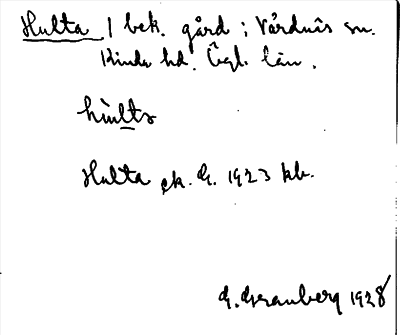 Hulta 1 bek. gård i Vårdnäs sn.
Kinda hd. Ögl. län.
hùlta
Hulta ek. G. 1923 kb.
G. Granberg 1928